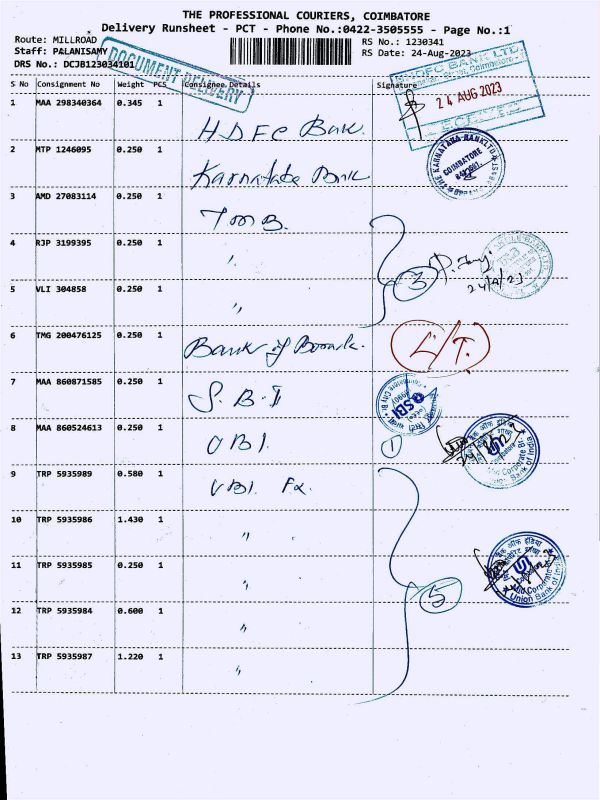 THE PROFESSIONAL COURIERS, COIMBATORE
Delivery Runsheet - PCT - Phone No.:0422-3505555 - Page No.:1
Route: MILLROAD RS No.: 1230341
Staff: PALANISAMY RS Date: 24-Aug-2023
DRS No.: DCJB123034101
DOCUMENT DELIVERY
S No Consignment No Weight PCS Consignee Details Signature
HDFC BANK LTD.
24 AUG 2023
1 MAA 298340364 0.345 1 HDFC Bank
2 MTP 1246095 0.250 1 Karnataka Bank
THE KARNATAKA BANK LTD
COIMBATORE
3 AMD 27083114 0.250 1 TMB.
4 RJP 3199395 0.250 1 "
3
5 VLI 304858 0.250 1 "
6 TMG 200476125 0.250 1 Bank of Baroda.
L/T.
7 MAA 860871585 0.250 1 S.B.I
SBI
8 MAA 860524613 0.250 1 UBI.
1
Mid Corporate Br.
Union Bank of India
9 TRP 5935989 0.580 1 UBI. Fx.
10 TRP 5935986 1.430 1 "
11 TRP 5935985 0.250 1 "
5
Mid Corporate
Union Bank of India
12 TRP 5935984 0.600 1 "
13 TRP 5935987 1.220 1 "